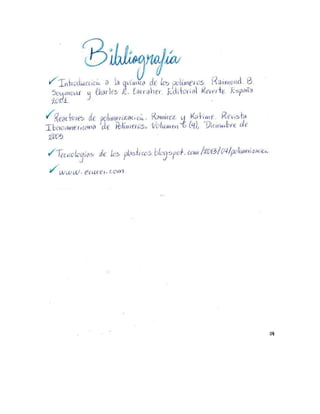 Bibliografía
✓ Introducción a la química de los polímeros. Raimond. B.
Seymour y Charles E. Carraher. Editorial Reverte. España
2002.
✓ Reactores de polimerización. Ramírez y Katime. Revista
Iberoamericana de Polímeros. Volumen 6 (4), Diciembre de
2005
✓ Tecnologías de los plasticos.blogspot.com/2013/07/polimerizacion.
✓ www.